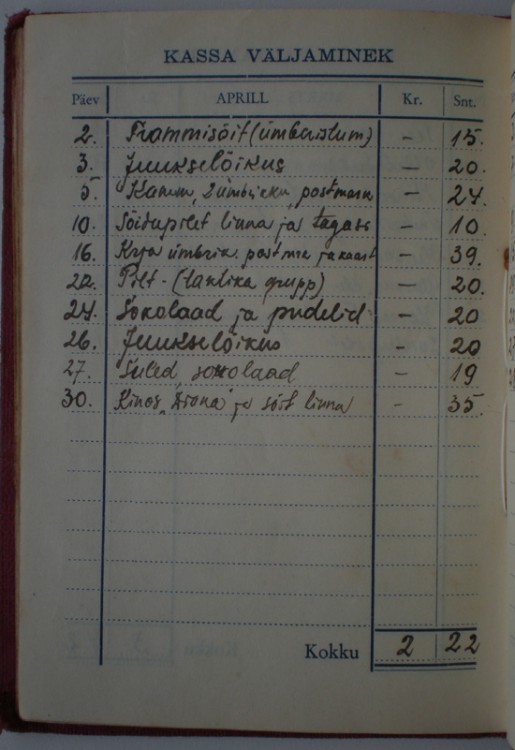 KASSA VÄLJAMINEK
Päev APRILL Kr. Snt.
2. Trammisõit (ümberistum) – 15.
3. Juukselõikus – 20.
5. Kamm, 2 ümbrikku, postmark – 24.
10. Sõidupilet linna ja tagasi – 10.
16. Kirja ümbrik. postmrk ja kaart – 39.
22. Pilt - (taktika grupp) – 20.
24. Šokolaad ja pudelid – 20
26. Juukselõikus – 20
27. Suled, šokolaad – 19
30. Kinos, "Diana" ja sõit linna – 35.
Kokku 2 22